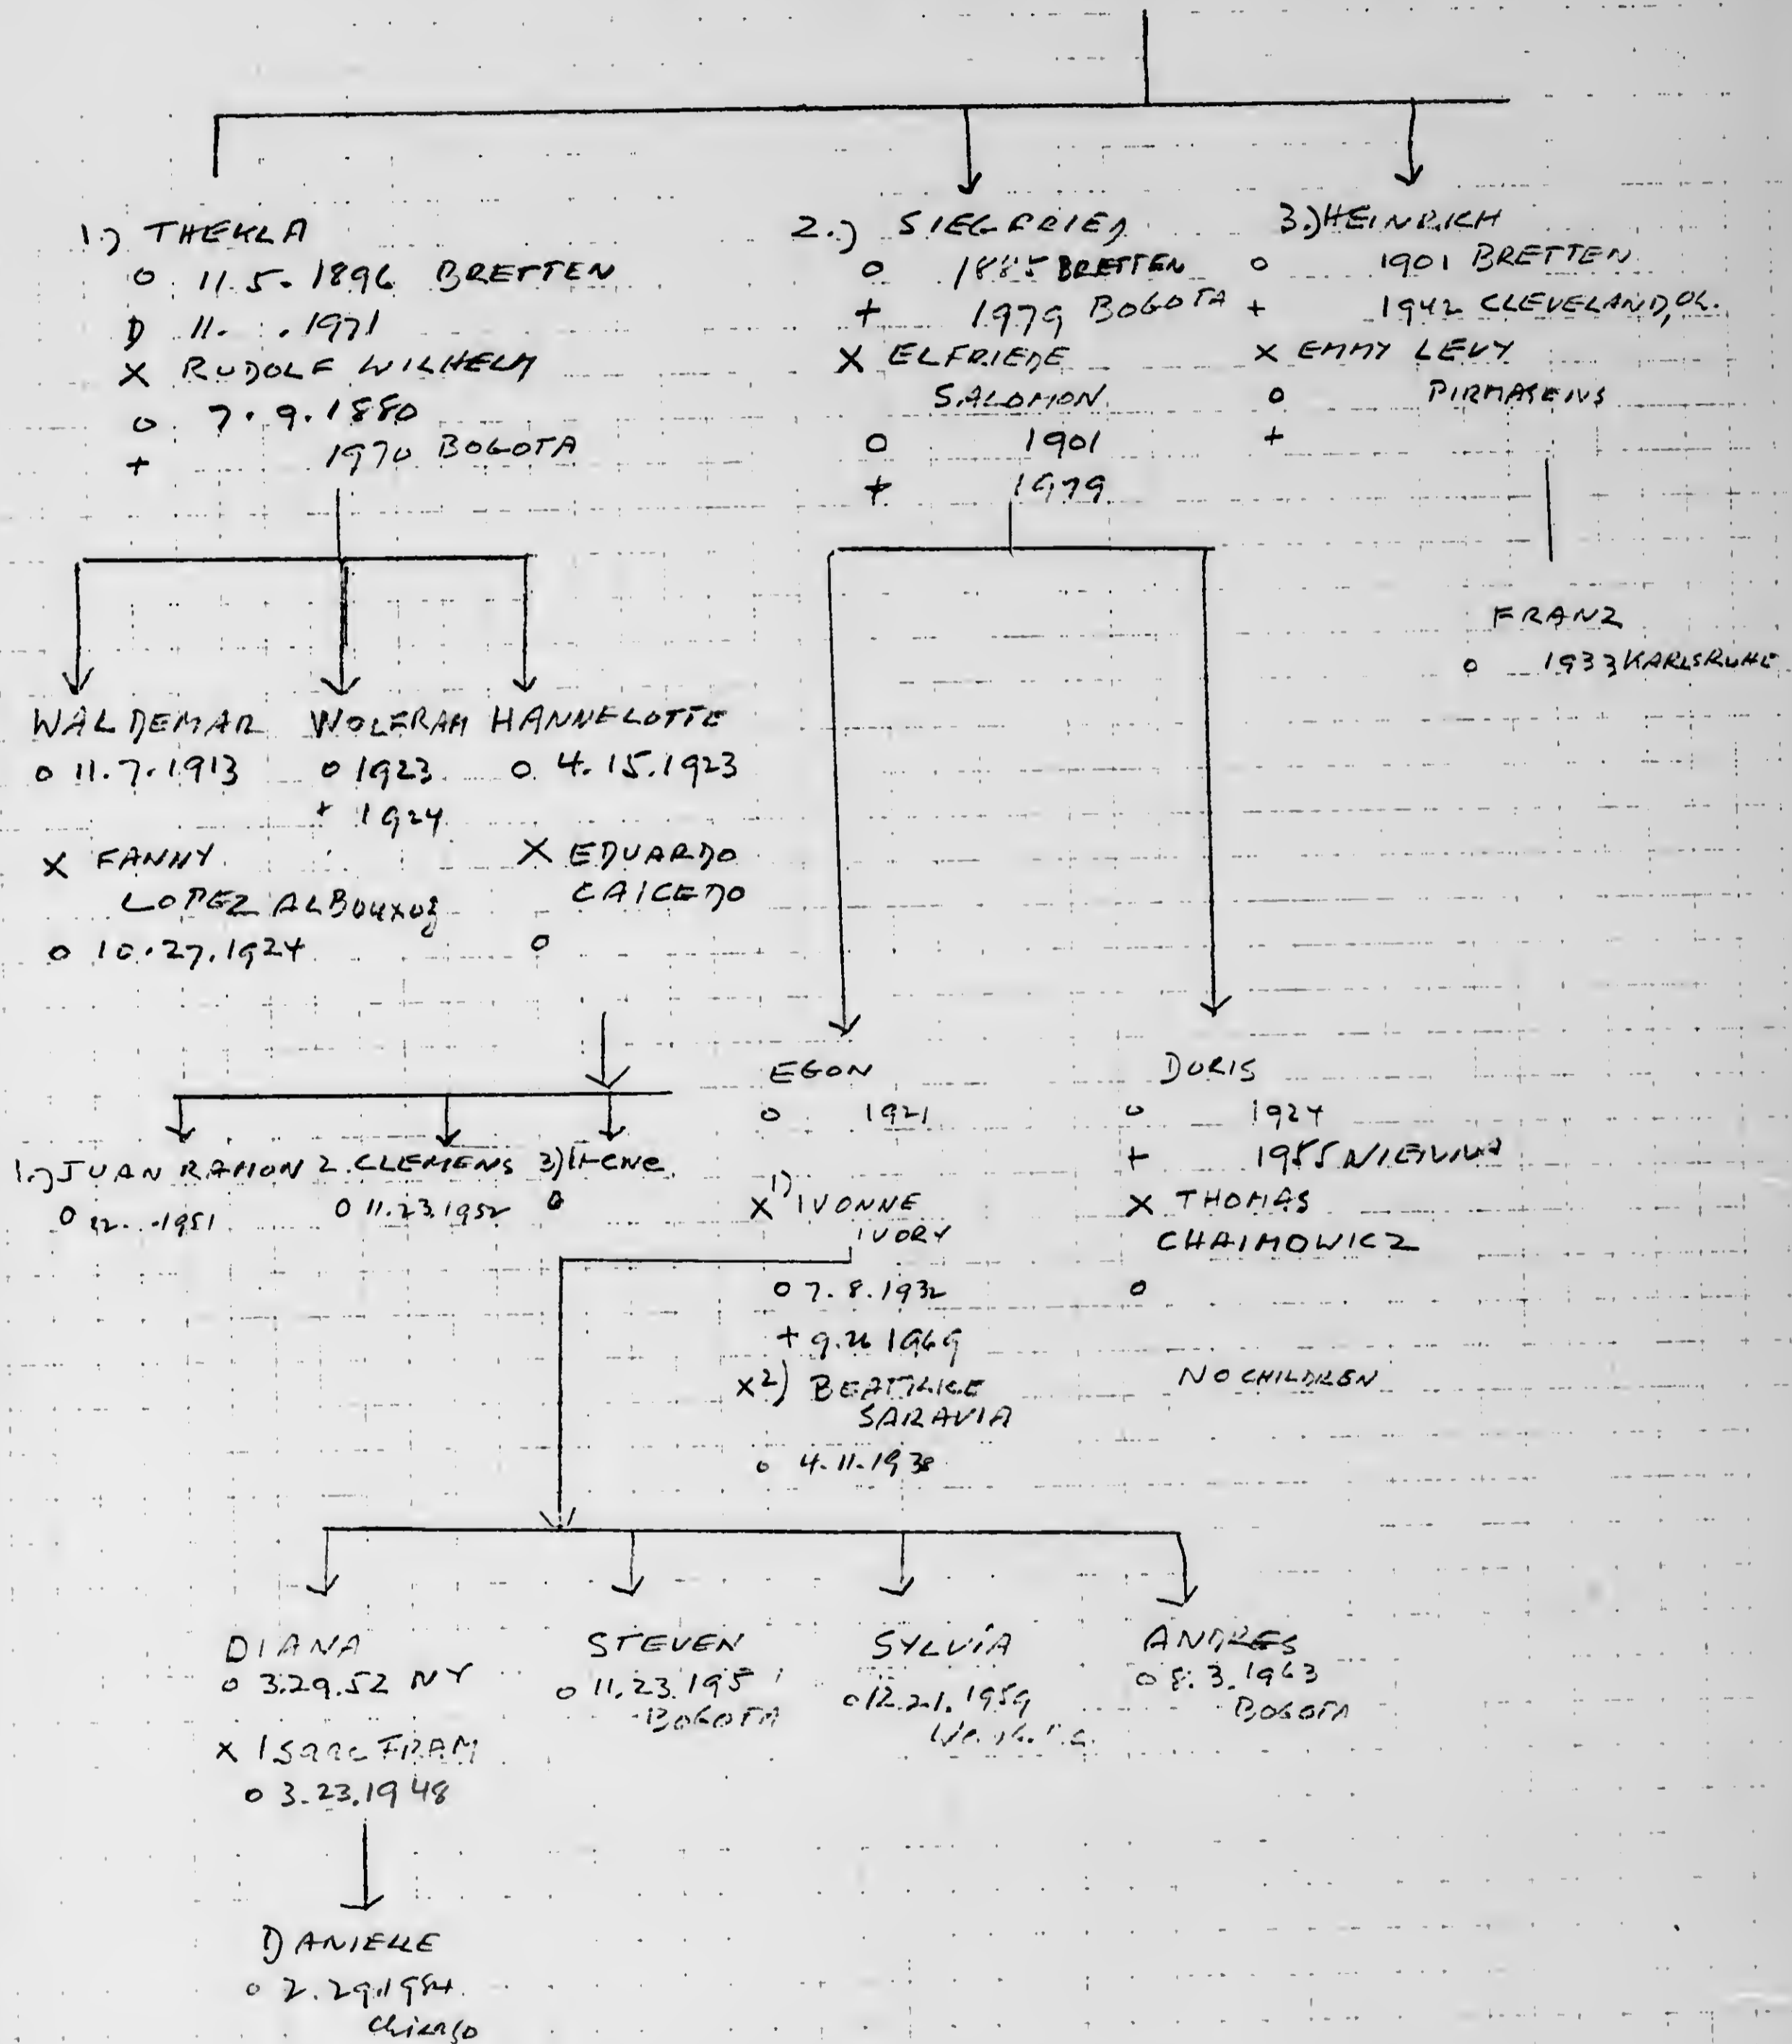 1.) THEKLA
o 11.5.1896 BRETTEN
D 11. . .1971
X RUDOLF WILHELM
o 7.9.1880
+ 1970 BOGOTA
2.) SIEGFRIED
o 1885 BRETTEN
+ 1979 BOGOTA
X ELFRIEDE
SALOMON
o 1901
+ 1979
3.) HEINRICH
o 1901 BRETTEN
+ 1942 CLEVELAND, OH.
X EMMY LEVY
o PIRMASENS
+
FRANZ
o 1933 KARLSRUHE
WALDEMAR
o 11.7.1913
X FANNY
LOPEZ
o 10.27.1924
WOLFRAM
o 1923
+ 1924
HANNELOTTE
o 4.15.1923
X EDUARDO
CAICEDO
o
1.) JUAN RAMON
o 12. .1951
2. CLEMENS
o 11.23.1952
3) Irene
o
EGON
o 1921
X 1) IVONNE
IVORY
o 7.8.1932
+ 9.26 1969
X 2) BEATRICE
SARAVIA
o 4.11.1938
DORIS
o 1924
+ 1955
X THOMAS
CHAIMOWICZ
o
NO CHILDREN
DIANA
o 3.29.52 NY
X Isaac FRAM
o 3.23.1948
STEVEN
o 11.23.195
BOGOTA
SYLVIA
o 12.21.1959
ANDRES
o 8.3.1963
BOGOTA
DANIELLE
o 2.29.1984
Chicago